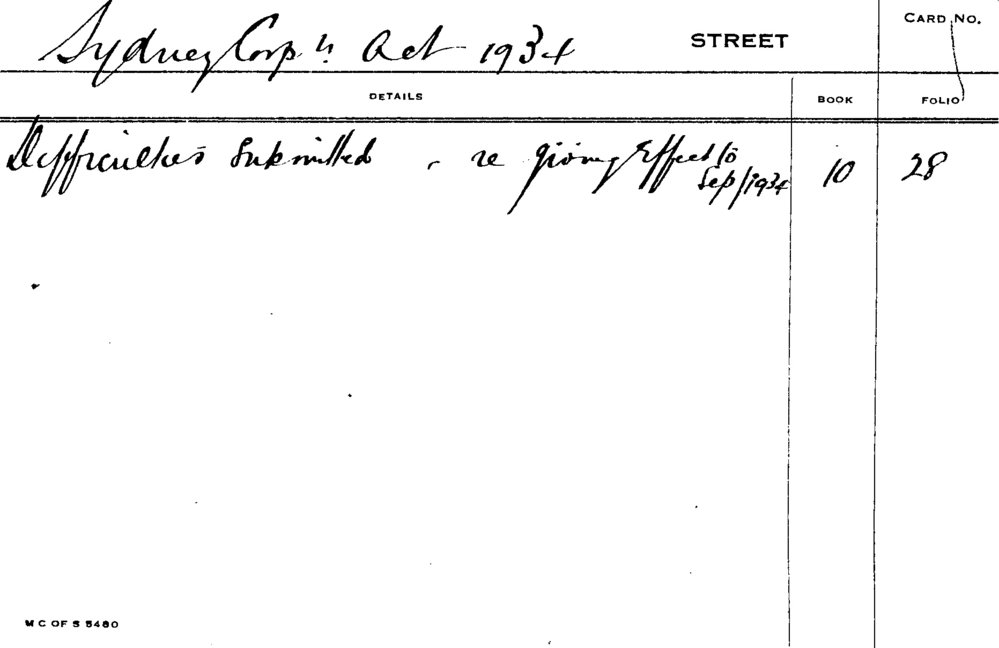 Sydney Corpn Act 1934 STREET CARD No.
DETAILS BOOK FOLIO
Difficulties Submitted, re giving Effect to 10 28
Sep/1934
M C OF S 5480